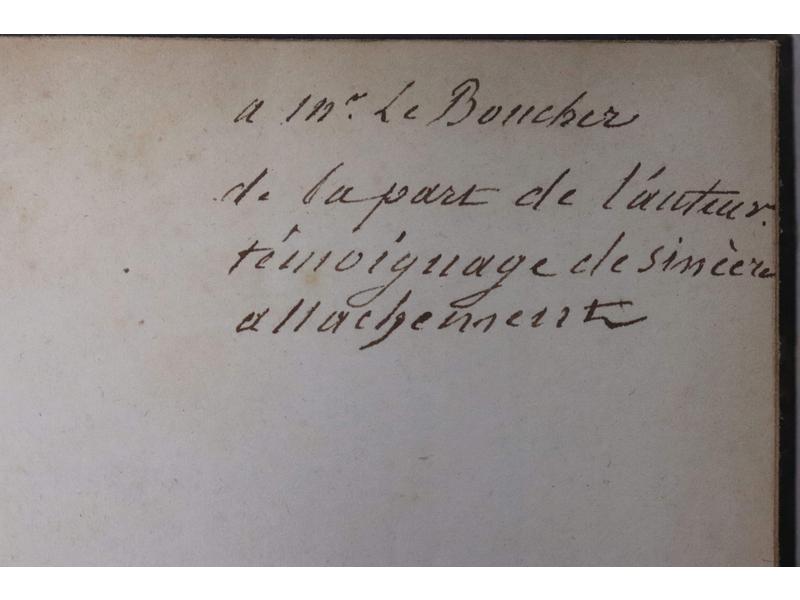 a mr. Le Boucher
de la part de l'auteur.
témoignage de sincère
attachement